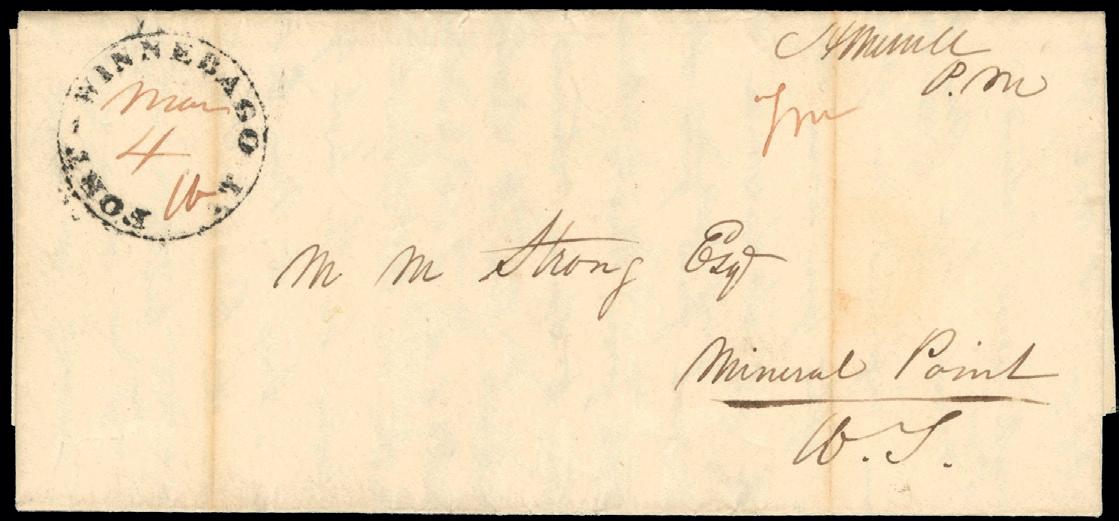 FORT - WINNEBAGO
Mar
4
H Merrell
P. M
M M Strong Esqr
Mineral Point
W. T.